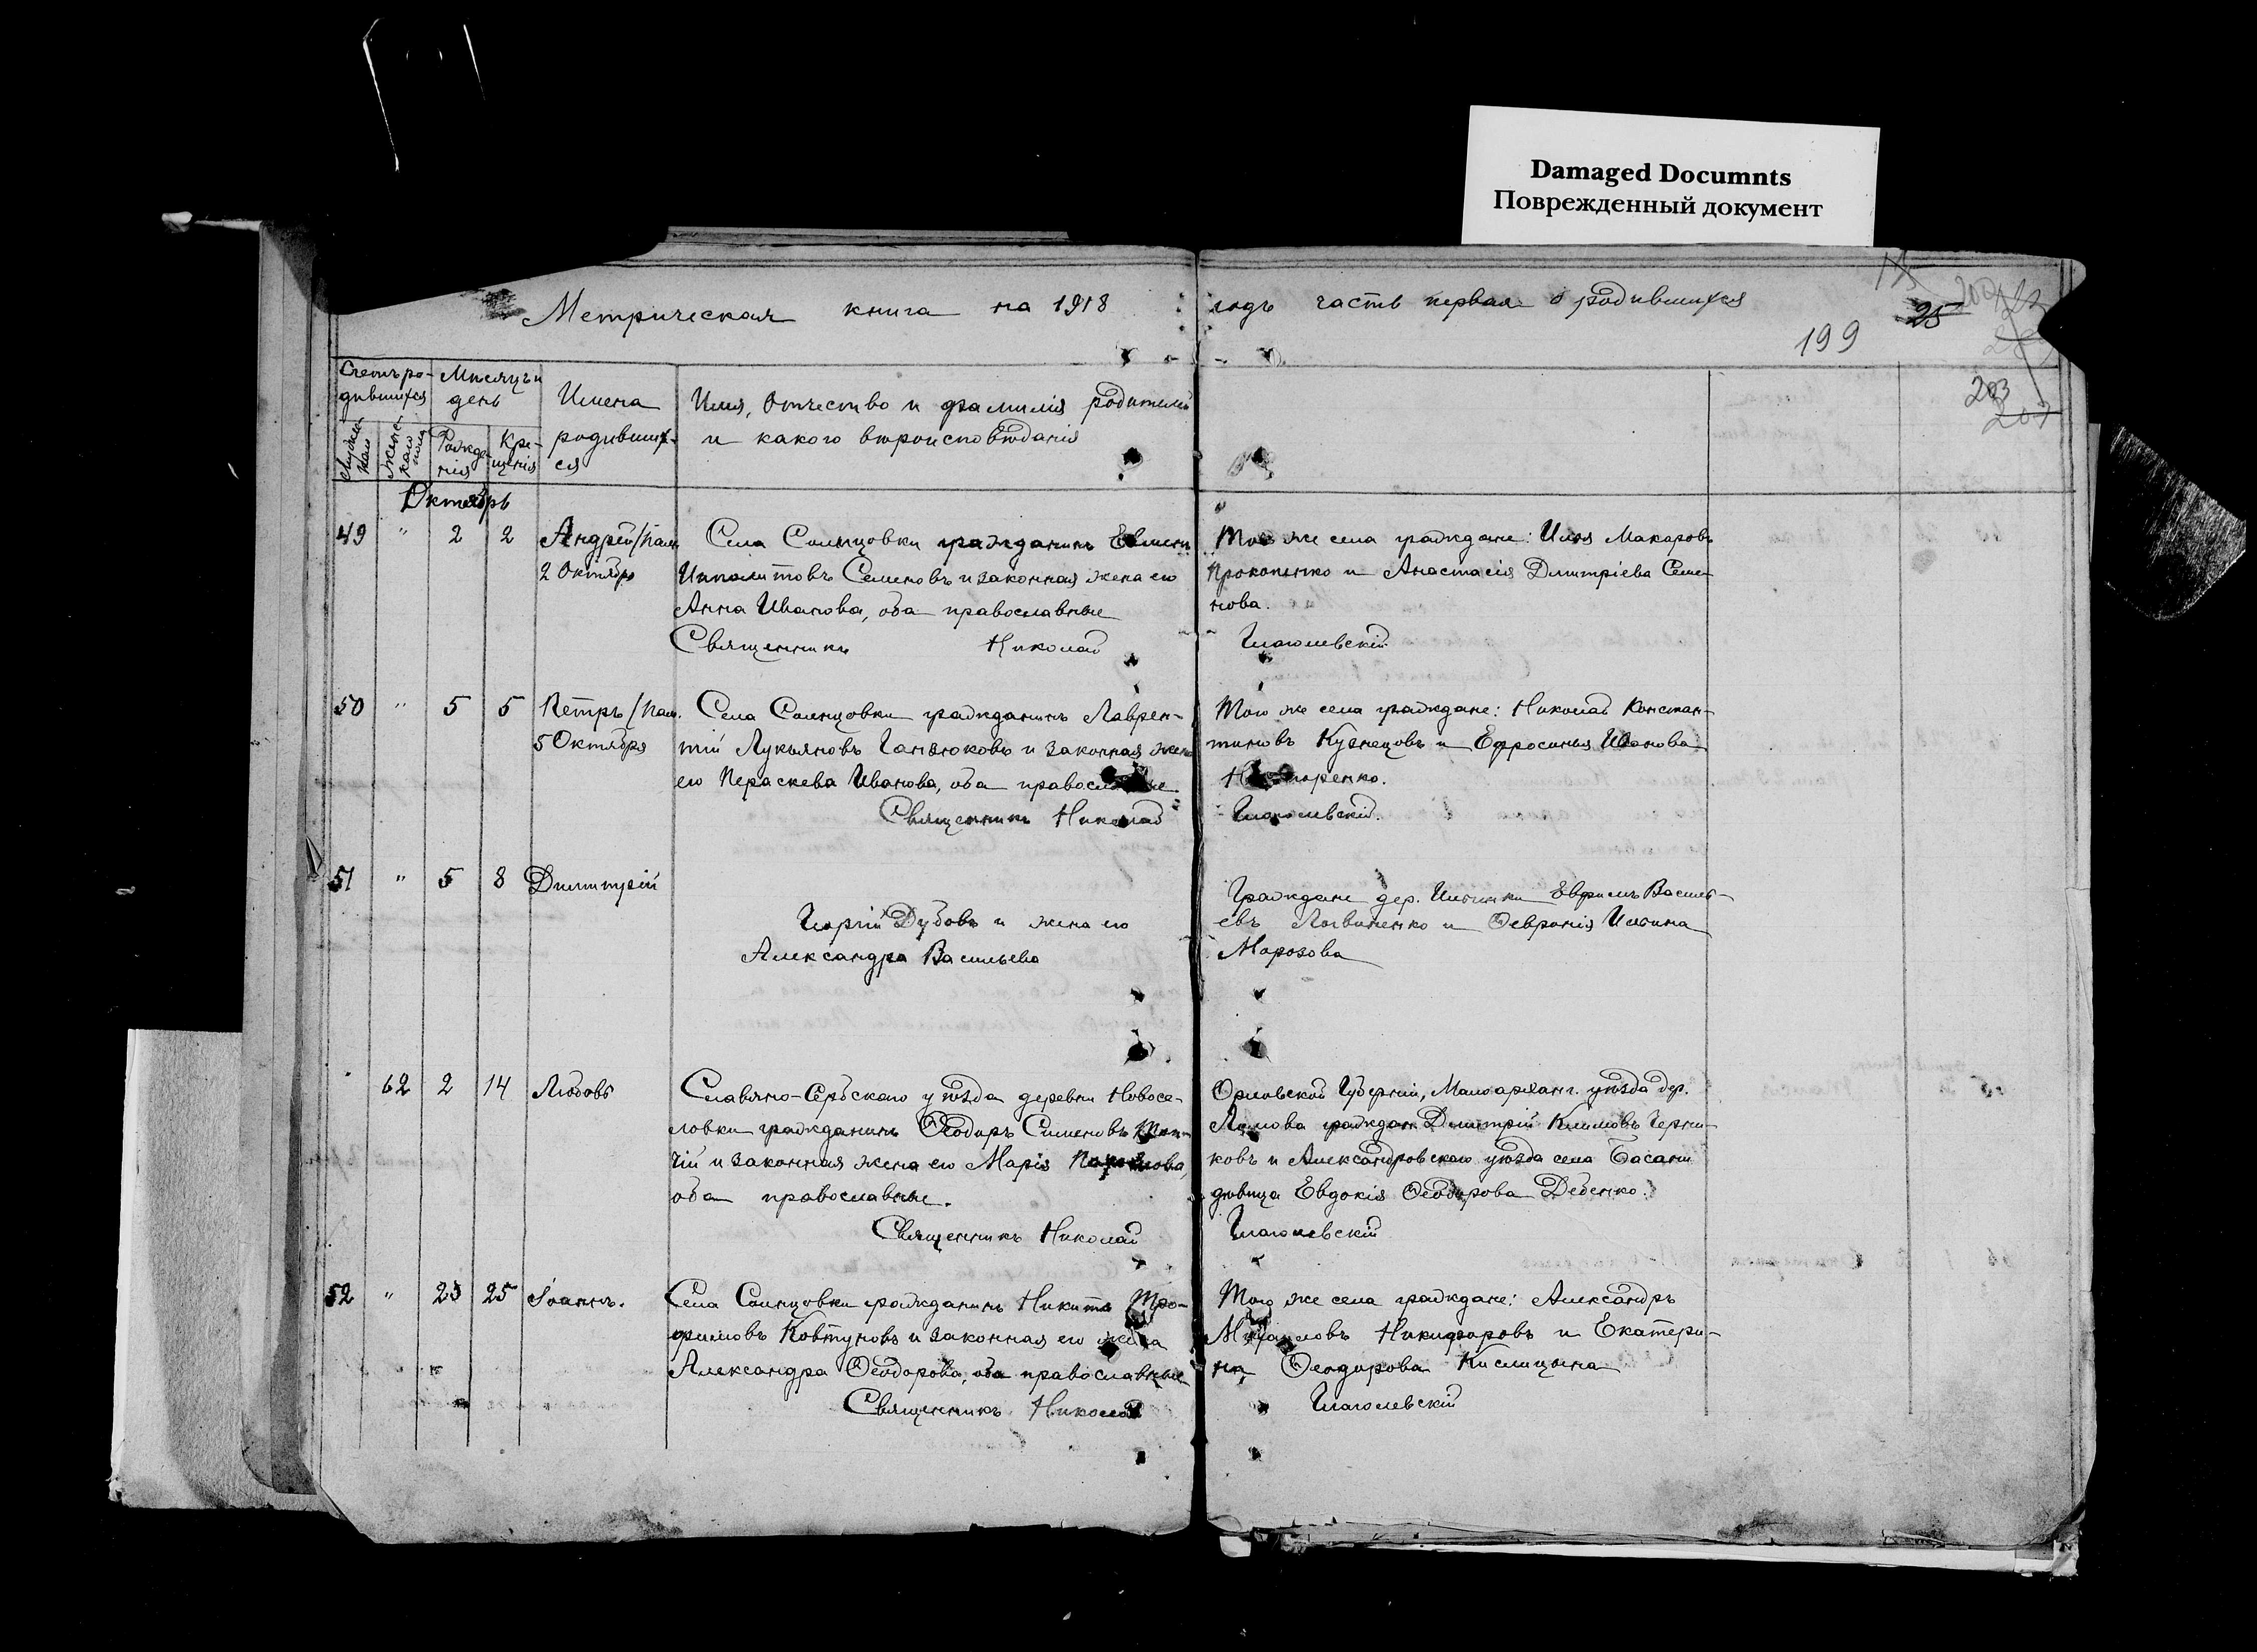 Damaged Documnts
Поврежденный документ
Метрическая книга на 1918
годъ часть первая о родившихся
199
25
203
Счетъ родившихся
Мѣсяцъ и день
Имена родившихся
Имя, Отчество и фамилія родителей
и какого вѣроисповѣданія
Рожденія
Крещенія
Октябрь
49 " 2 2 Андрей/пам.
2 Октября
Села Солнцовки гражданинъ
Ипполитовъ Семеновъ и законная жена его
Анна Иванова, оба православные
Священникъ Николай
Того же села граждане: Илья Макаровъ
Прокопенко и Анастасія Димитріева Семе-
нова.
Глаголевскій
50 " 5 5 Петръ/пам.
5 Октября
Села Солнцовки гражданинъ Лаврен-
тій Лукьяновъ Ганзюковъ и законная жена
его Пераскева Иванова, оба
Священникъ Николай
Того же села граждане: Николай Констан-
тиновъ Кузнецовъ и Ефросинья Иванова
Глаголевскій.
51 " 5 8 Димитрій
Георгій Дубовъ и жена его
Александра Васильева
Граждане дер. Ефимъ Василь-
евъ Логвиненко и Февронія Ильина
Морозова
62 2 14 Любовь
Славяно-Сербскаго уѣзда деревни Новосе-
ловки гражданинъ Ѳеодоръ Сименовъ
и законная жена его Марія
оба православные.
Священникъ Николай
Орловской Губерніи, Малоарханг. уѣзда дер.
граждан Димитрій Климовъ Черни-
ковъ и Александровскаго уѣзда села Басани
дѣвица Евдокія Ѳеодорова Дебенко.
Глаголевскій
52 " 23 25 Іоаннъ.
Села Солнцовки гражданинъ Никита Тро-
фимовъ Ковтуновъ и законная его жена
Александра Ѳеодорова, оба православные
Священникъ Николай
Того же села граждане: Александръ
Михаиловъ Никифоровъ и Екатери-
на Ѳеодорова Кислицына
Глаголевскій